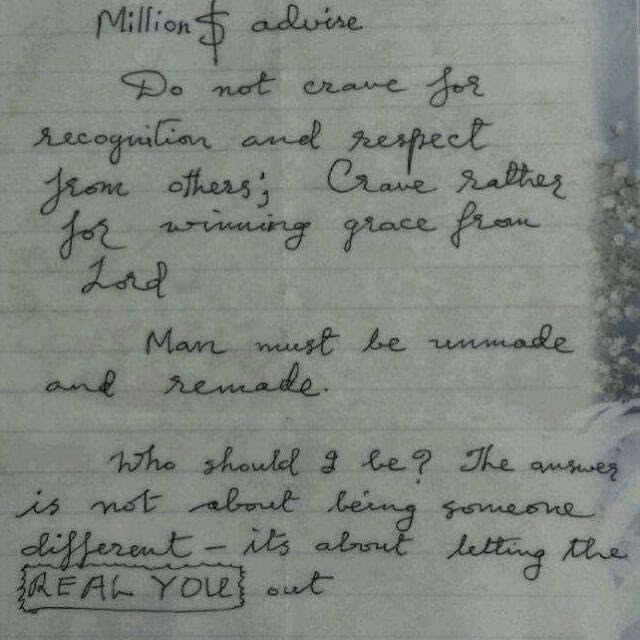 Million $ advise
Do not crave for
recognition and respect
from others; Crave rather
for winning grace from
Lord
Man must be unmade
and remade.
Who should I be? The answer
is not about being someone
different – its about letting the
REAL YOU out